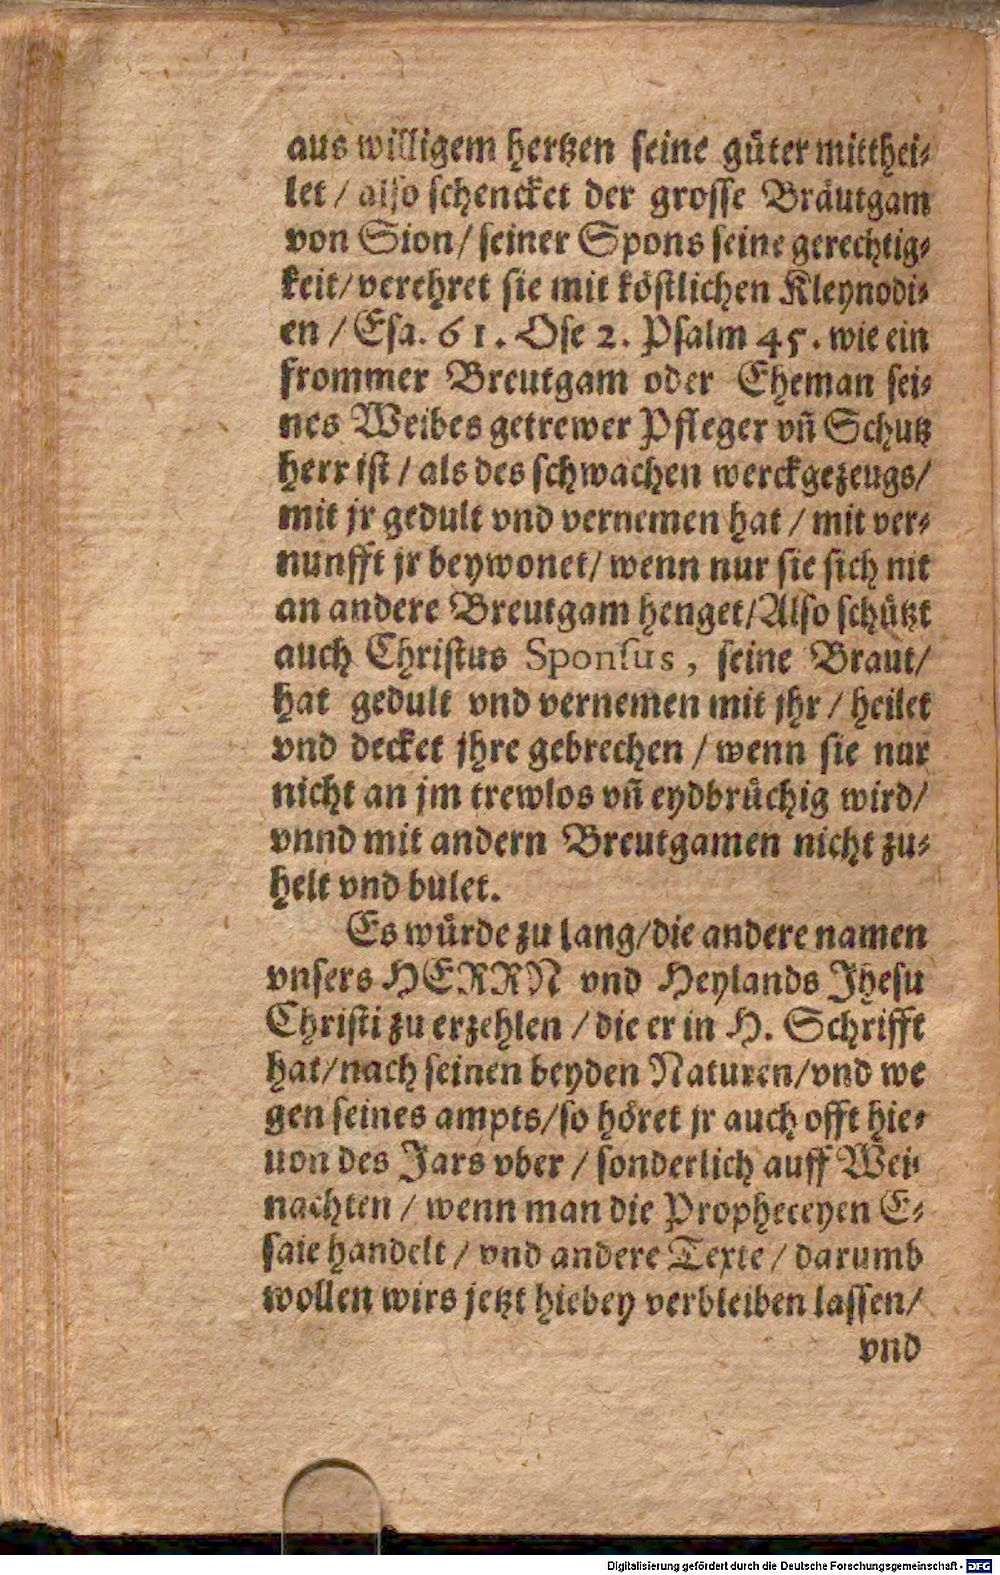 aus willigem hertzen seine güter mitthei⸗
let / also schencket der grosse Bräutgam
von Sion / seiner Spons seine gerechtig⸗
keit / verehret sie mit köstlichen Kleynodi⸗
en / Esa. 61. Ose 2. Psalm 45. wie ein
frommer Breutgam oder Eheman sei⸗
nes Weibes getrewer Pfleger vñ Schutz
herr ist / als des schwachen werckgezeugs /
mit jr gedult vnd vernemen hat / mit ver⸗
nunfft jr beywonet / wenn nur sie sich nit
an andere Breutgam henget / Also schützt
auch Christus Sponsus, seine Braut /
hat gedult vnd vernemen mit jhr / heilet
vnd decket jhre gebrechen / wenn sie nur
nicht an jm trewlos vñ eydbrüchig wird /
vnnd mit andern Breutgamen nicht zu⸗
helt vnd bulet.
Es würde zu lang / die andere namen
vnsers HERRN vnd Heylands Jhesu
Christi zu erzehlen / die er in H. Schrifft
hat / nach seinen beyden Naturen / vnd we
gen seines ampts / so höret jr auch offt hie⸗
uon des Jars vber / sonderlich auff Wei⸗
nachten / wenn man die Propheceyen E⸗
saie handelt / vnd andere Texte / darumb
wollen wirs jetzt hiebey verbleiben lassen /
vnd
Digitalisierung gefördert durch die Deutsche Forschungsgemeinschaft - DFG